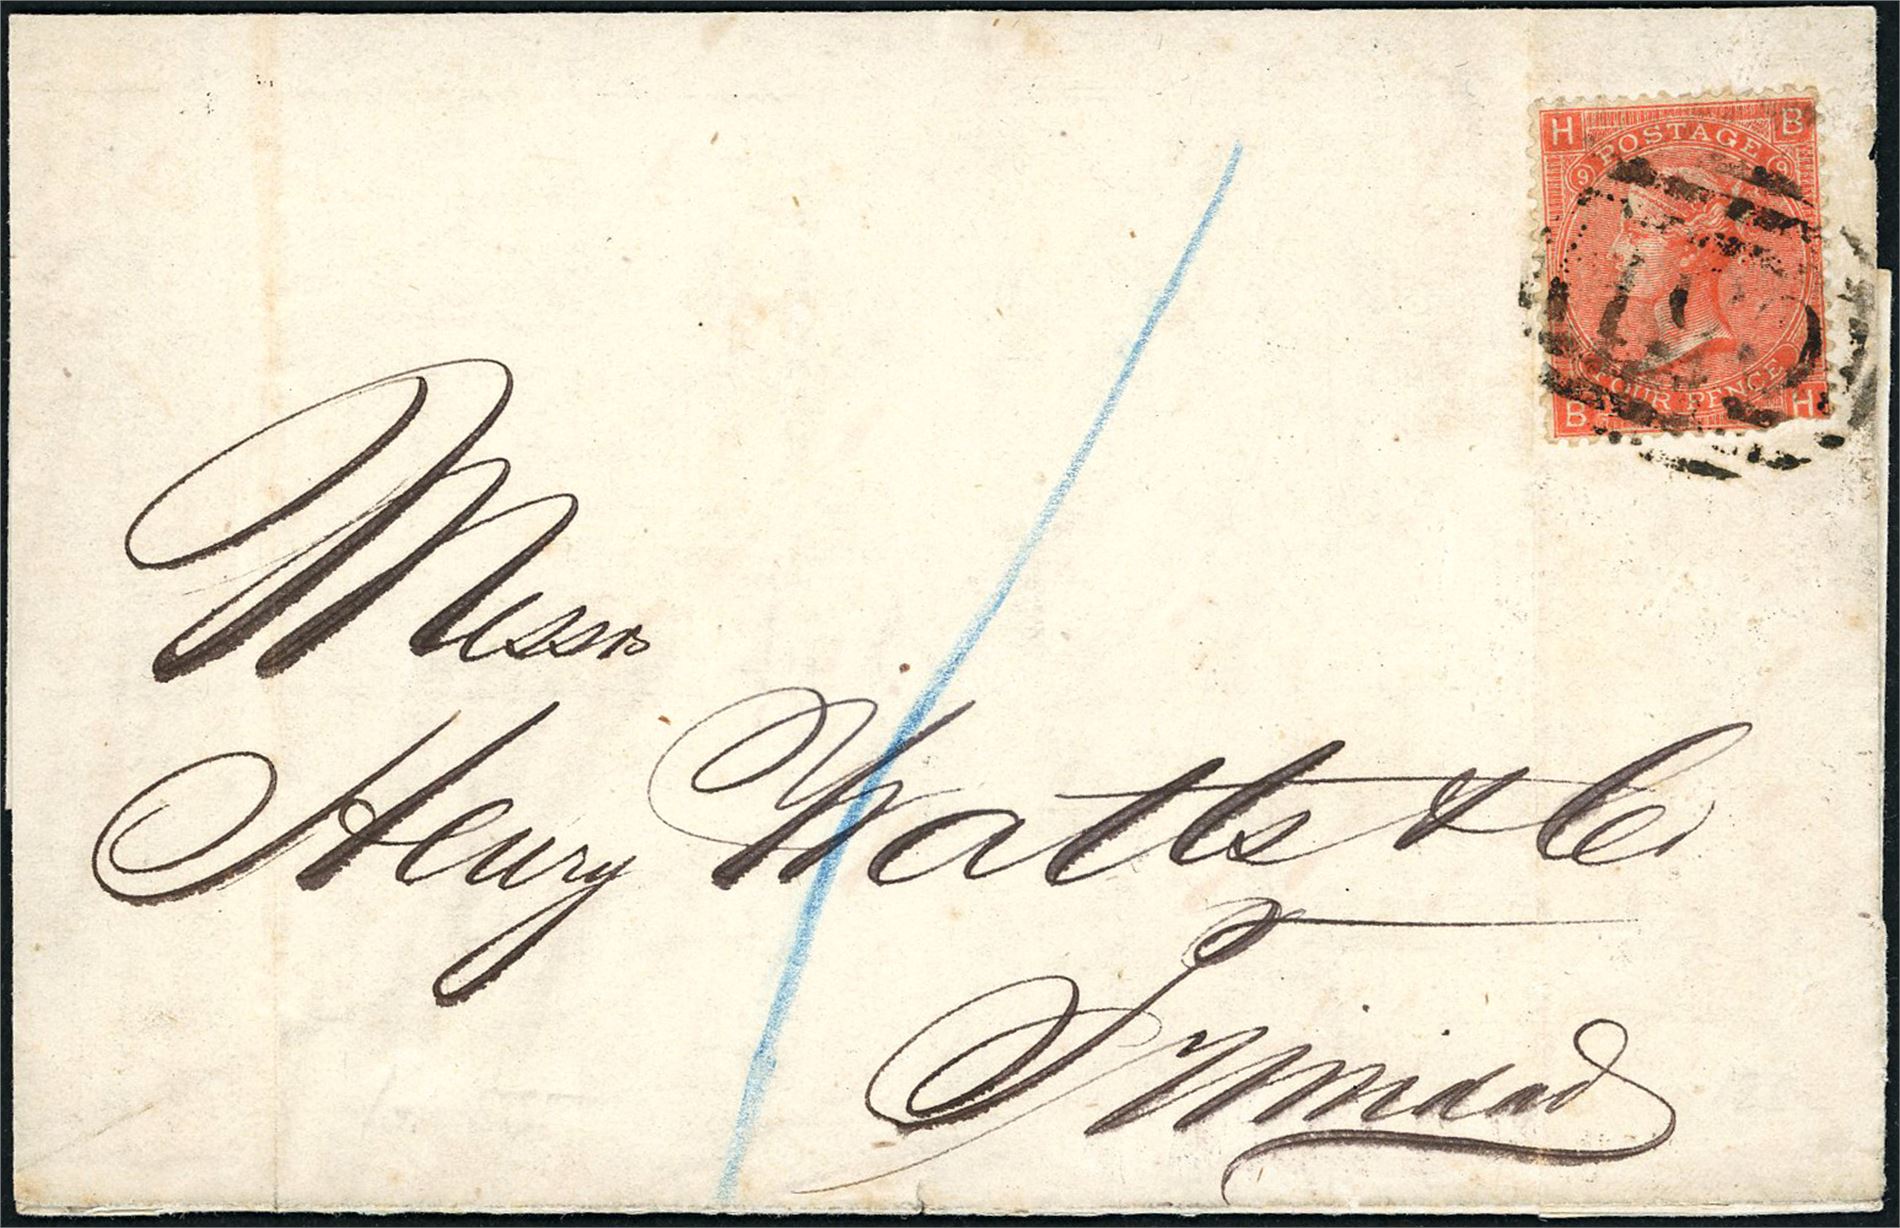 H B
POSTAGE
9 9
FOUR PENCE
B H
Messrs
Henry Watts & Co
Trinidad